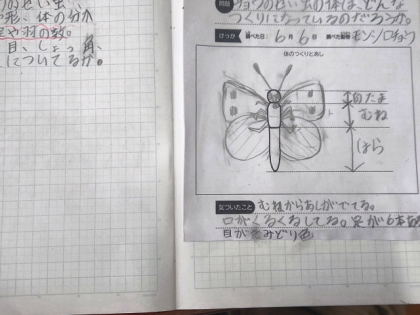 のせい虫、
や形、体の分か
足や羽の数。
目、しょっ角、
についてるか。
問題 チョウのせい虫の体は、どんな
つくりになっているのだろうか。
けっか 調べた日 6月6日 調べた動物 モンシロチョウ
体のつくりとあし
頭
むね
はら
気づいたこと むねからあしがでてる。
口がくるくるしてる。足が6本
目がきみどり色